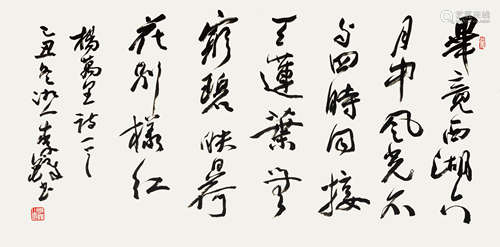 畢竟西湖六
月中风光不
与四時同接
天蓮葉無
窮碧映日荷
花别樣红
楊萬里詩一
乙丑冬李鐸书